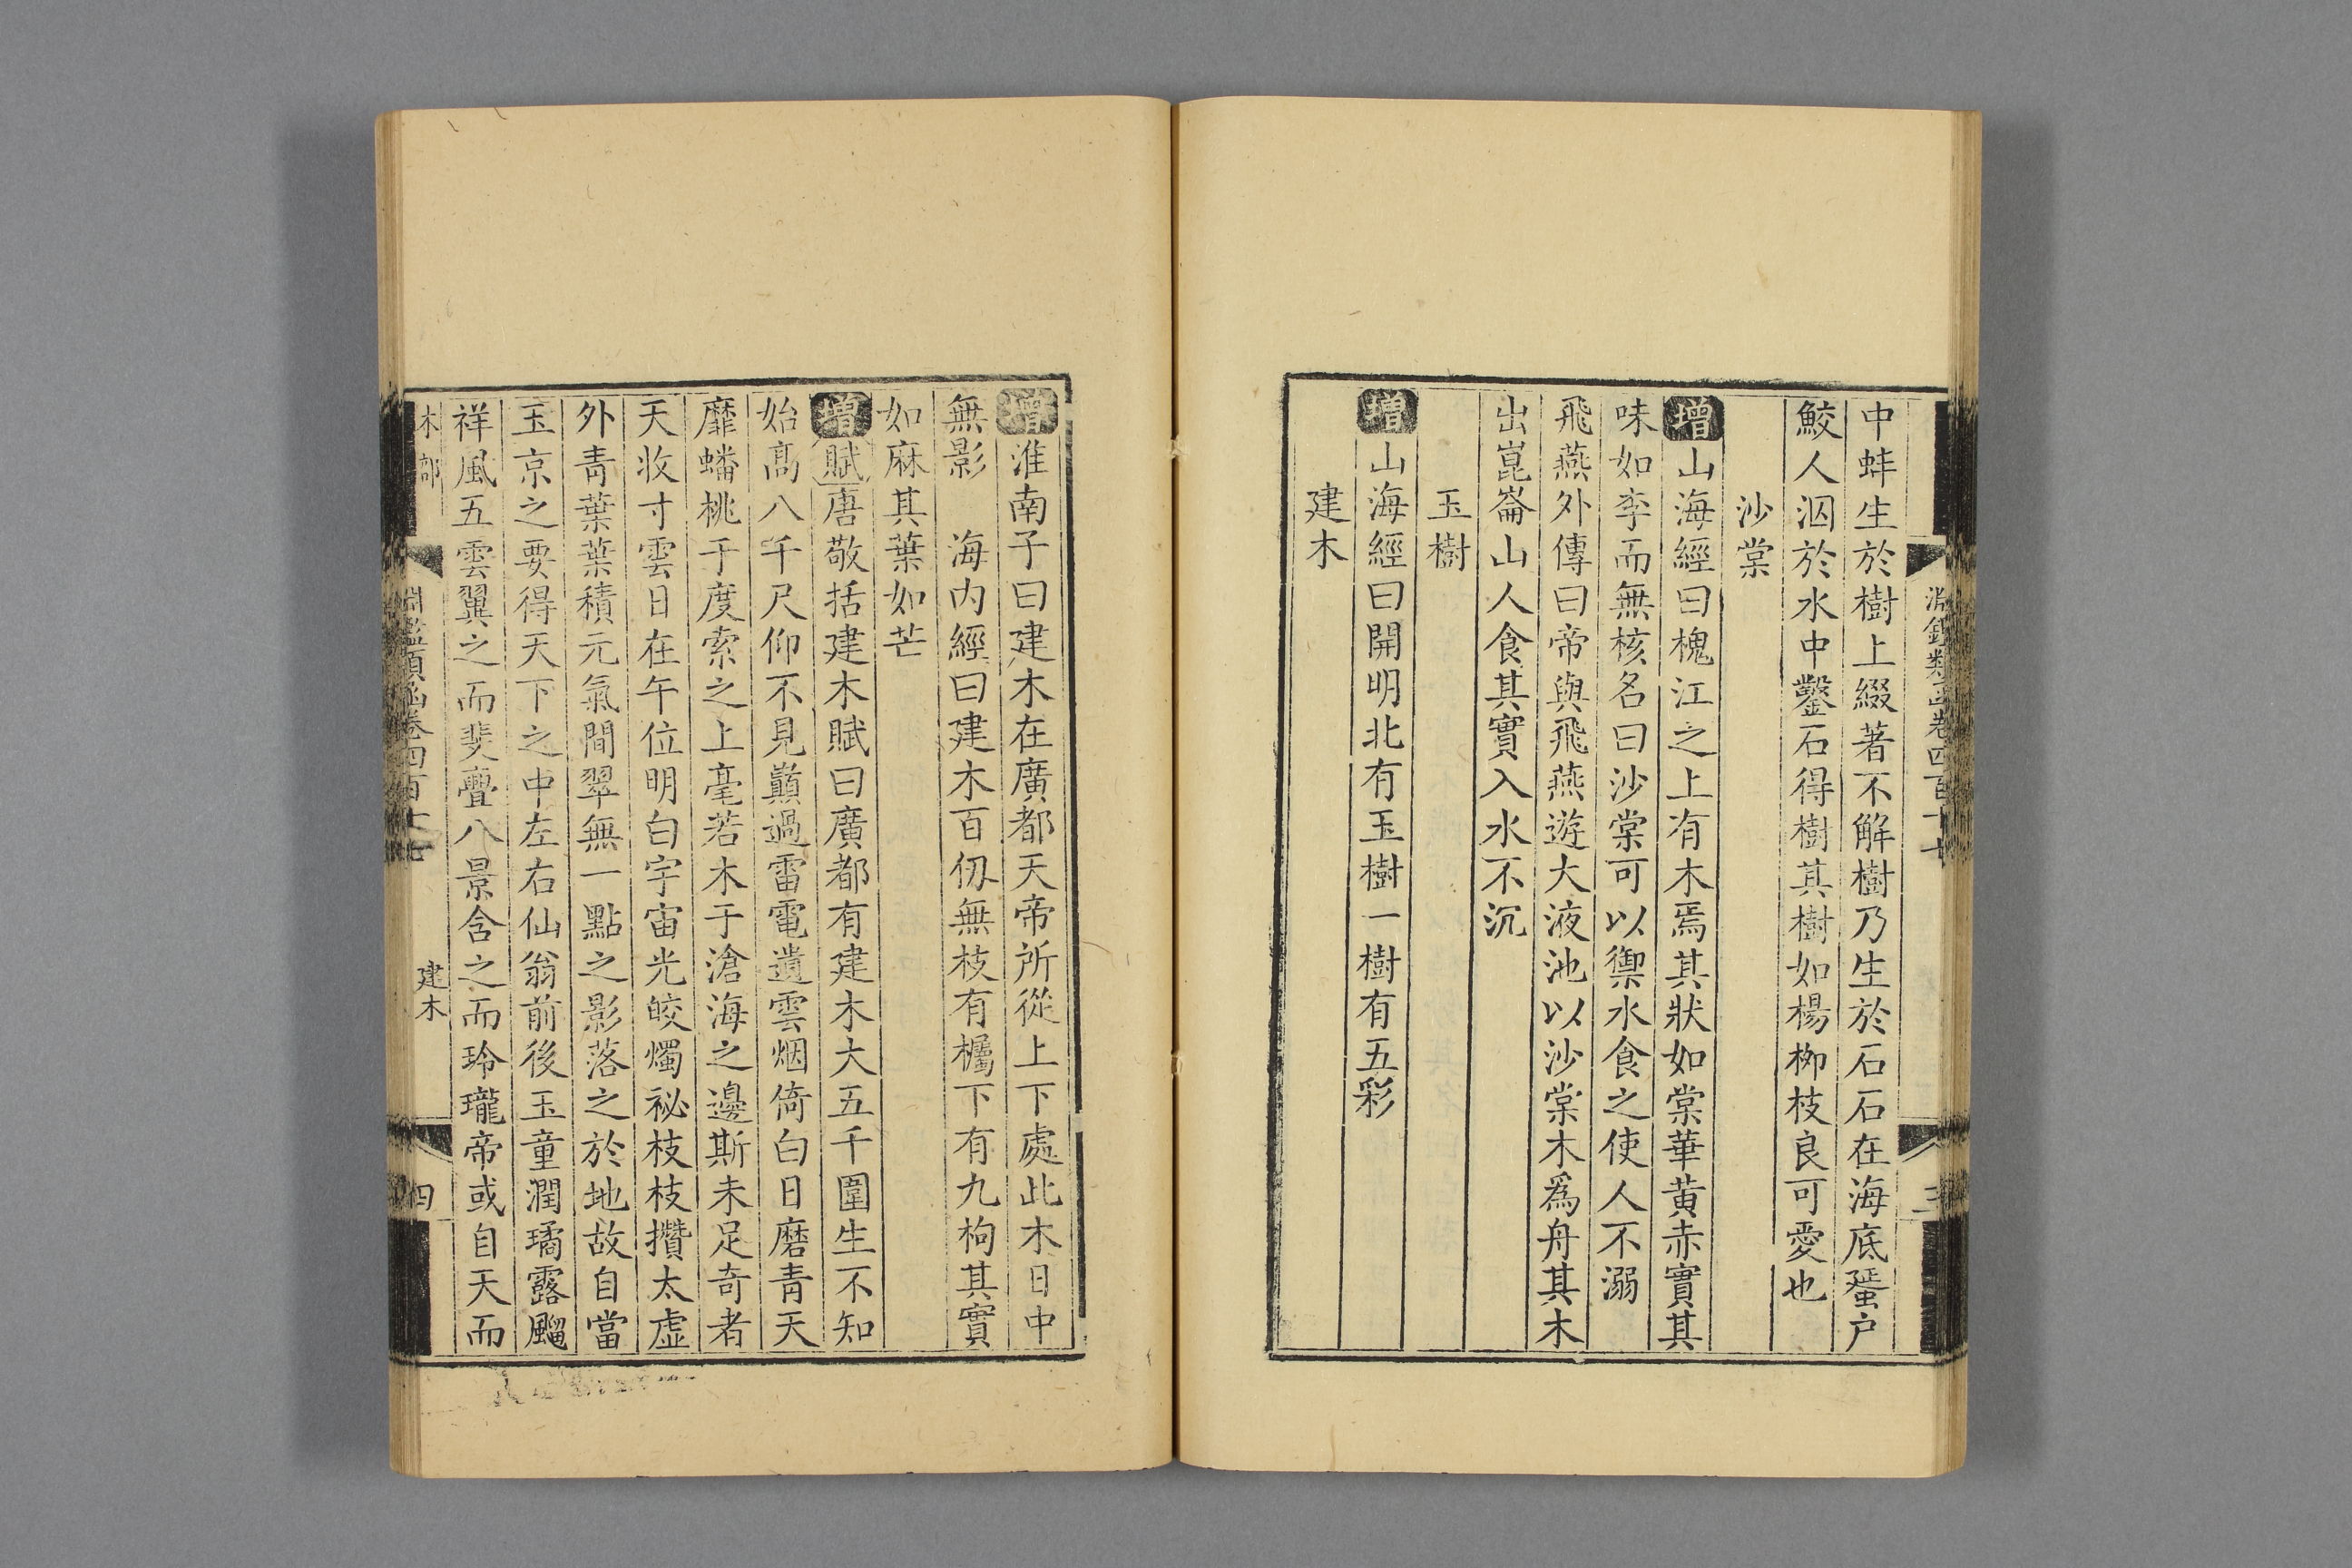 中蚌生於樹上綴著不解樹乃生於石石在海底蜑户
鮫人泅於水中鑿石得樹其樹如楊栁枝良可愛也
沙棠
增山海經曰槐江之上有木焉其狀如棠華黄赤實其
味如李而無核名曰沙棠可以禦水食之使人不溺
飛燕外傳曰帝與飛燕遊大液池以沙棠木爲舟其木
出崑崙山人食其實入水不沉
玉樹
增山海經曰開明北有玉樹一樹有五彩
建木
增淮南子曰建木在廣都天帝所從上下處此木日中
無影 海内經曰建木百仭無枝有欘下有九枸其實
如麻其葉如芒
增賦唐敬括建木賦曰廣都有建木大五千圍生不知
始髙八千尺仰不見巔過雷電遺雲烟倚白日磨青天
靡蟠桃于度索之上毫若木于滄海之邊斯未足奇者
天收寸雲日在午位明白宇宙光皎燭祕枝枝攢太虚
外青葉葉積元氣間翠無一點之影落之於地故自當
玉京之要得天下之中左右仙翁前後玉童潤璚露飀
祥風五雲翼之而斐亹八景含之而玲瓏帝或自天而
木部
淵鑑類函卷四百十七
建木
四